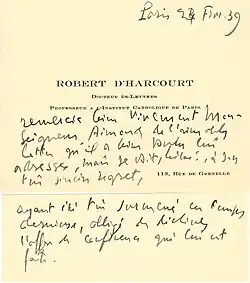 Paris 24 Févr. 39
ROBERT D'HARCOURT
DOCTEUR ÈS-LETTRES
PROFESSEUR A L'INSTITUT CATHOLIQUE DE PARIS
remercie bien vivement Mon-
seigneur de l'
lettre qu'il a bien voulu lui
adresser, mais se voit, à son
très sincère regret,
113, RUE DE GRENELLE
ayant été très surmené ces temps
derniers, obligé de décliner
l'offre de conférence qui lui est
faite.